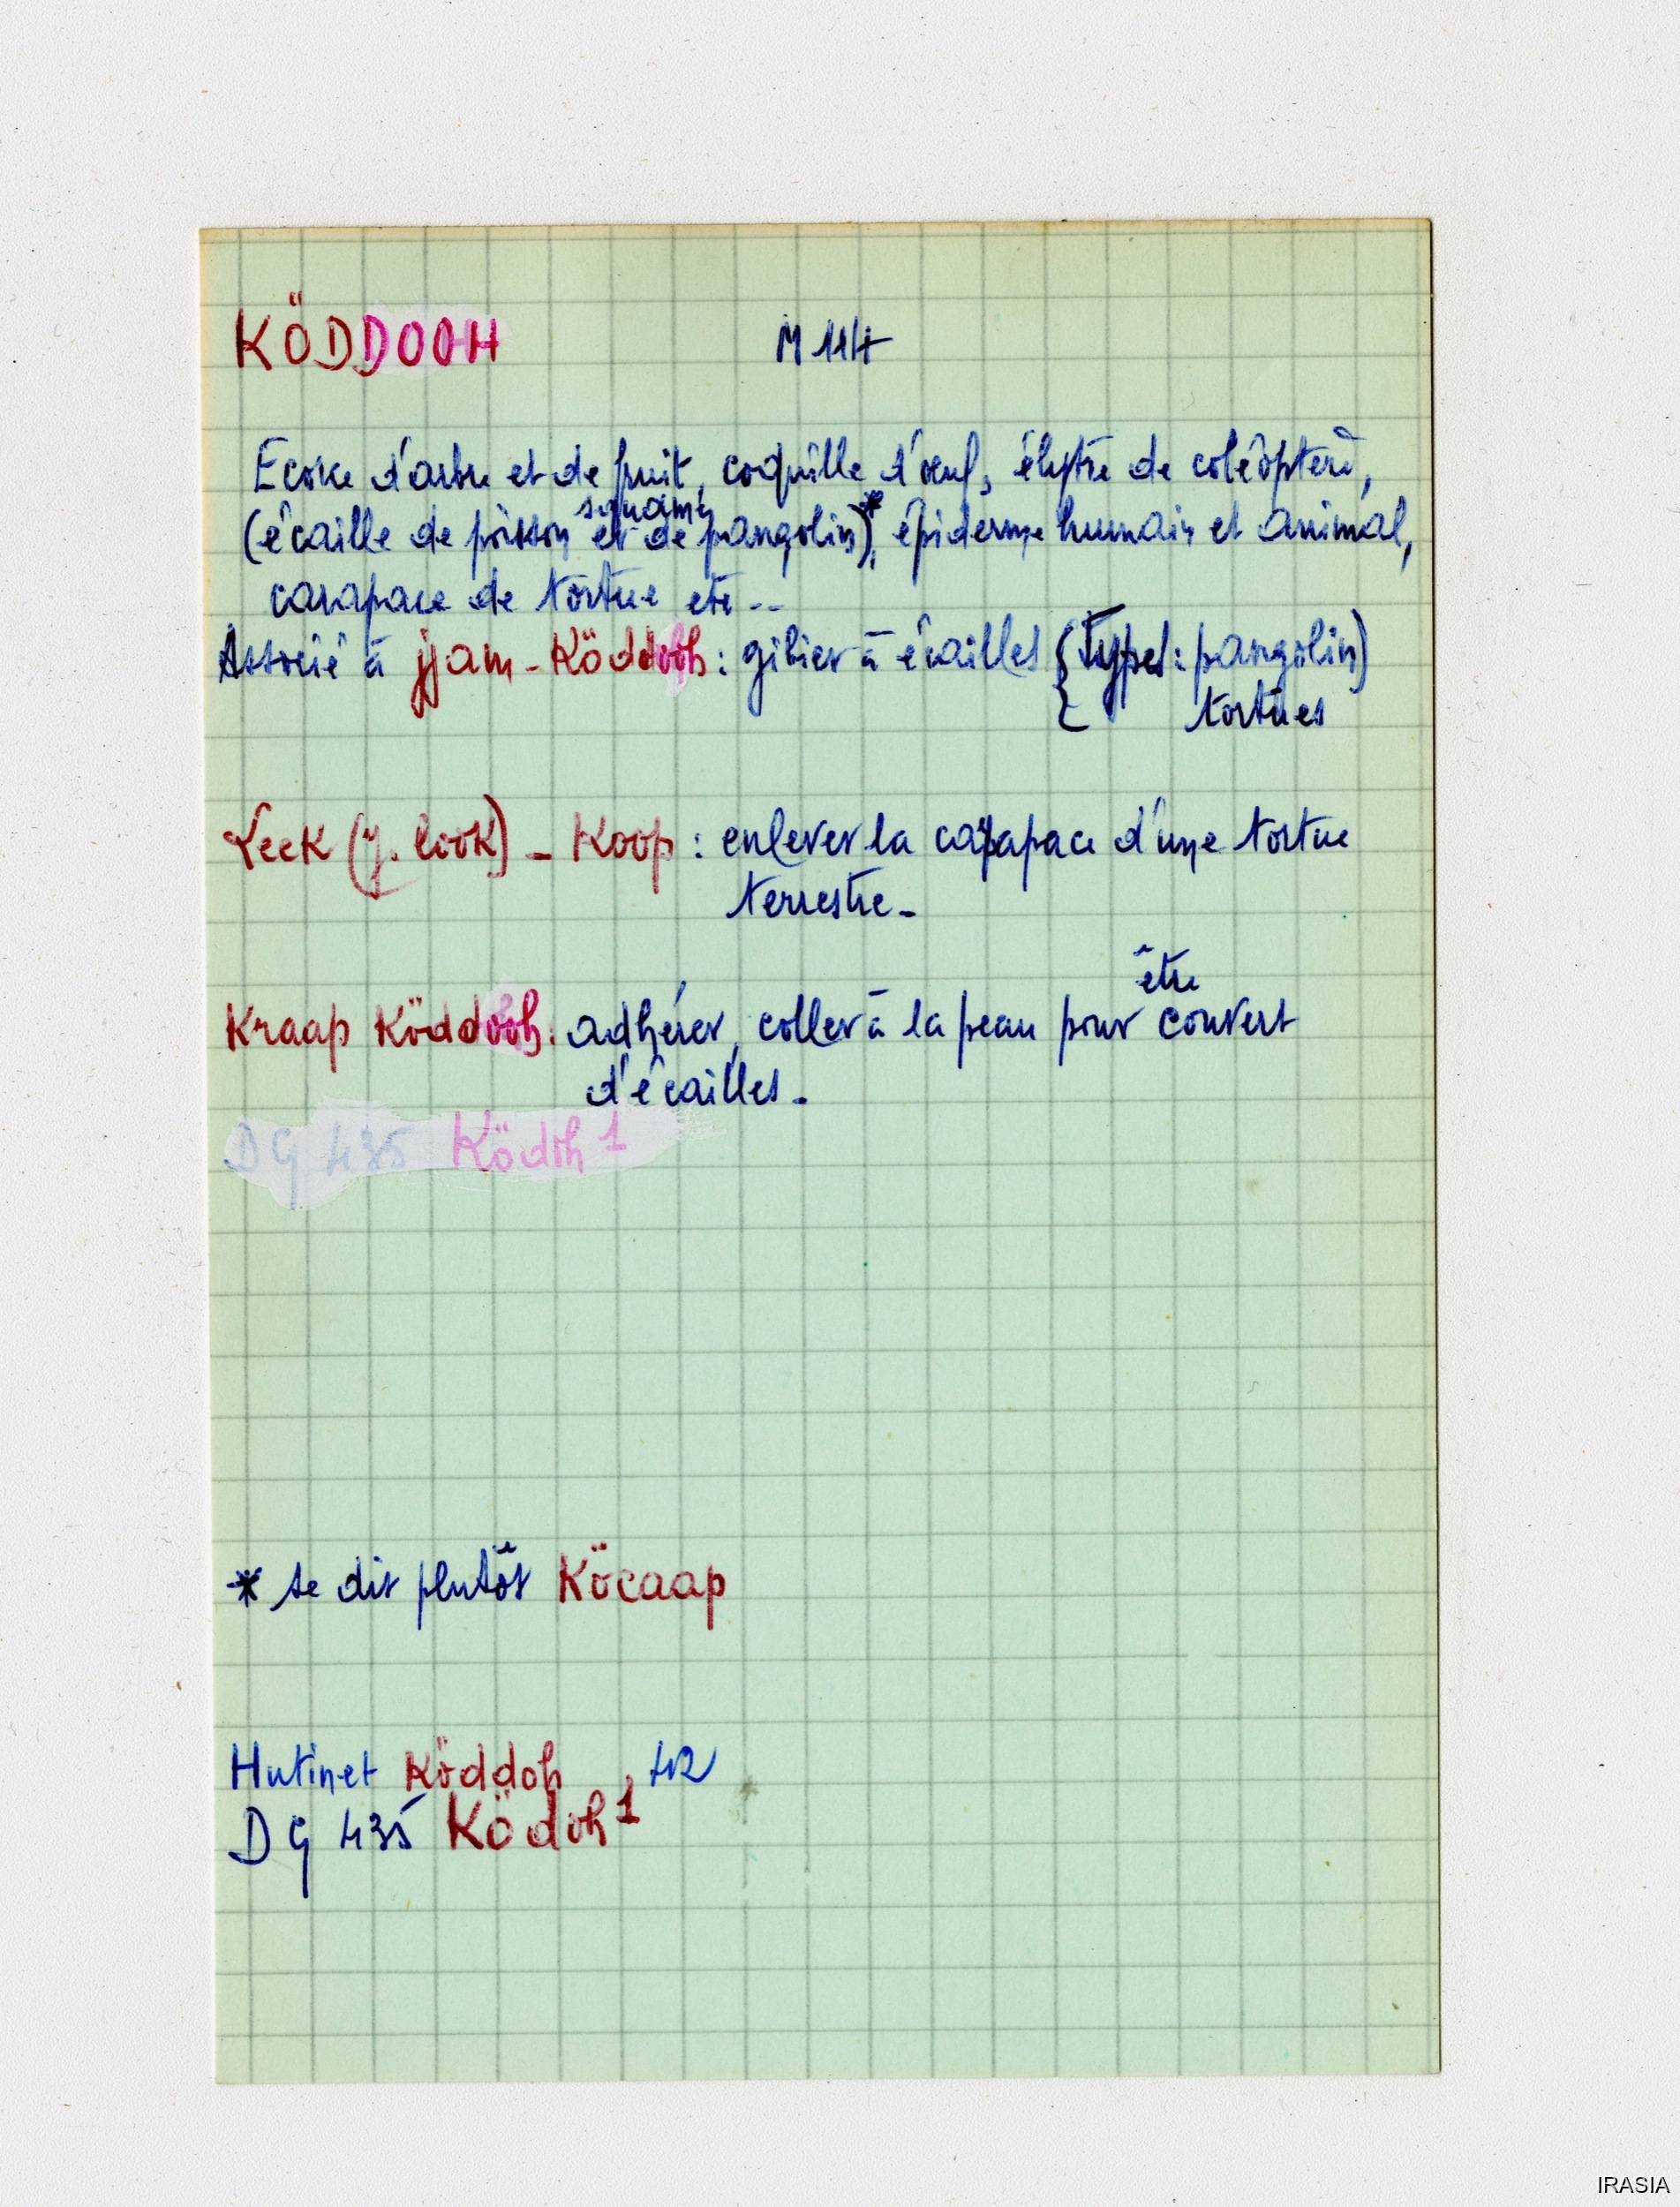 KÖDDOOH M 114
Ecorce d'arbre et de fruit, coquille d'œuf, élytre de coléoptère,
squame
(écaille de poisson et de pangolin)*, épiderme humain et animal,
carapace de tortue etc --
Associé à jjam-Köddooh : gibier à écailles (Types : pangolin)
tortues
Leek (y. look) - Koop : enlever la carapace d'une tortue
terrestre -
être
Kraap Köddooh : adhérer, coller à la peau pour couvert
d'écailles -
DG 435 Ködoh 1
* se dit plutôt Köcaap
Hutinet Köddoh 42
DG 435 Ködoh 1
IRASIA